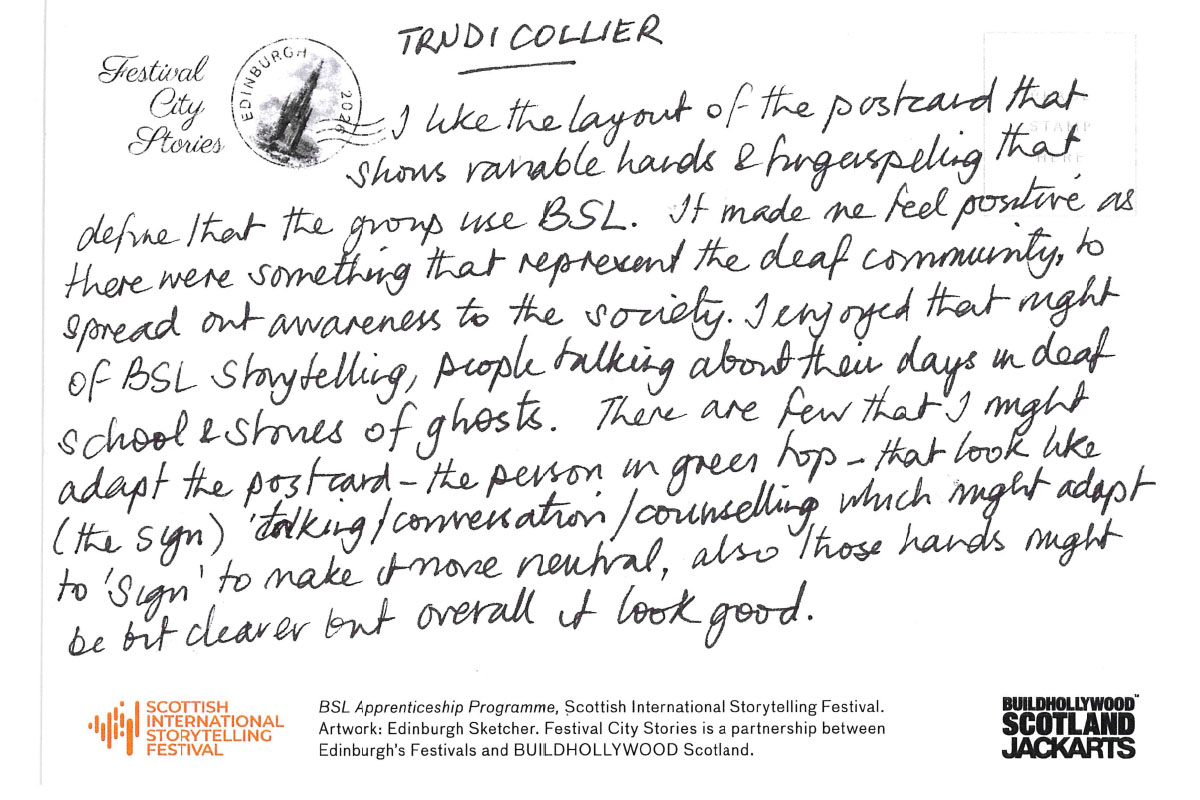 TRUDI COLLIER
Festival
City
Stories
EDINBURGH 2026
PLACE
STAMP
HERE
I like the layout of the postcard that
shows variable hands & fingerspelling that
define that the group use BSL. It made me feel positive as
there were something that represent the deaf community, to
spread out awareness to the society. I enjoyed that night
of BSL storytelling, people talking about their days in deaf
school & stories of ghosts. There are few that I might
adapt the postcard – the person in green top – that look like
(the sign) 'talking/conversation/counselling which might adapt
to 'sign' to make it more neutral, also those hands might
be bit clearer but overall it look good.
SCOTTISH
INTERNATIONAL
STORYTELLING
FESTIVAL
BSL Apprenticeship Programme, Scottish International Storytelling Festival.
Artwork: Edinburgh Sketcher. Festival City Stories is a partnership between
Edinburgh's Festivals and BUILDHOLLYWOOD Scotland.
BUILDHOLLYWOOD™
SCOTLAND
JACKARTS